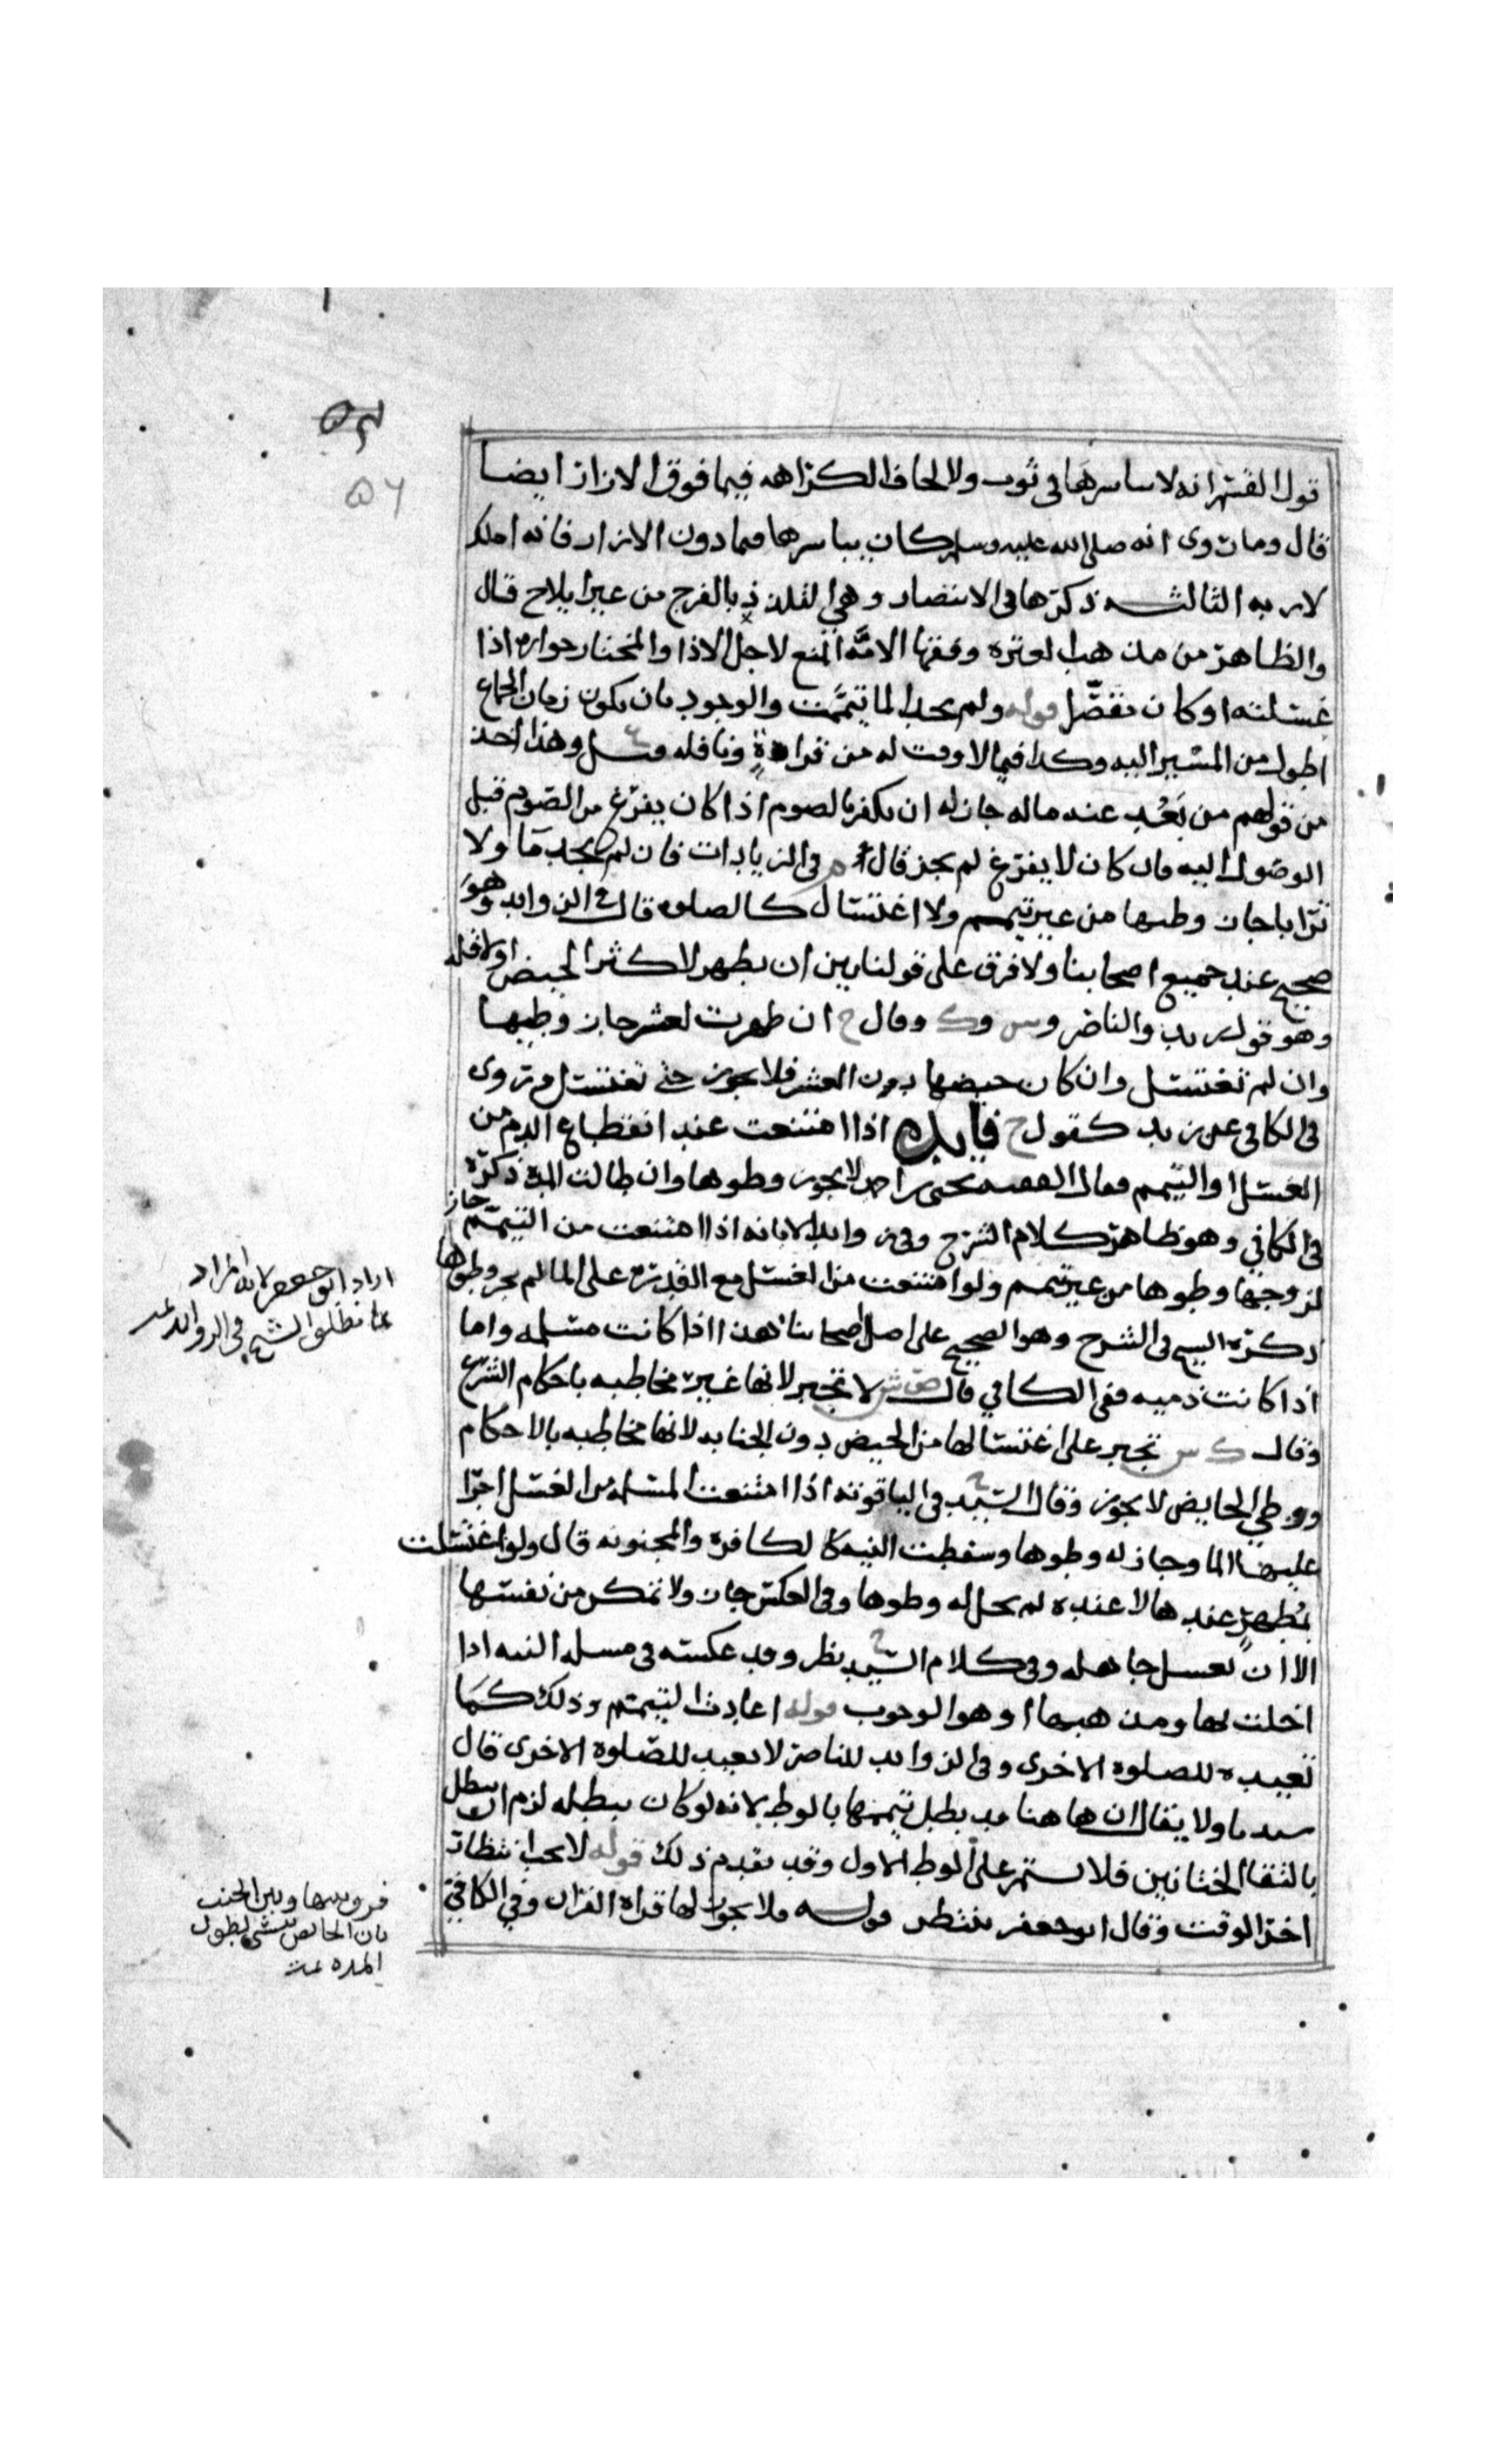 ٥٦
قول القسم انه لا يباشرها في ثوب ولا لحاف الكراهه فيما فوق الازار ايضا
قال وما روى انه صلى الله عليه وسلم كان يباشرها فيما دون الازار فانه املك
لاربه الثالثه ذكرها في الانتصار وهي التلذذ بالفرج من غير ايلاج قال
والظاهر من مذهب العتره وفقها الامه المنع لاجل الاذا والمختار جوازه اذا
غسلته او كان قوله ولم يجد الما تيممت والوجود بان يكون زمان الجماع
اطول من المسير اليه وكذا فيما لا وقت له من قراة ونافله وهذا اخذ
من قولهم من بَعُد عنه ماله جاز له ان يكفر بالصوم اذا كان يفرغ من الصوم قبل
الوصول اليه فان كان لا يفرغ لم يجز قال في الزيادات فان لم يجد مآ ولا
ترابا جاز وطيها من غير تيمم ولا اغتسال كالصلوه قال في الزوايد وهو
صحيح عند جميع اصحابنا ولا فرق على قولنا بين ان يطهر لاكثر الحيض او لاقله
وهو قول زيد والناصر وس وك وقال ح ان طهرت لعشر جاز وطيها
وان لم تغتسل وان كان حيضها دون العشر فلا يجوز حتى تغتسل وروى
في الكافي عن زيد كقول ح فايده اذا امتنعت عند انقطاع الدم من
الغسل او التيمم فقال لا يجوز وطوها وان طالت المدة ذكره
في الكافي وهو ظاهر كلام الشرح وفي انه اذا امتنعت من التيمم جاز
لزوجها وطوها من غير تيمم ولو امتنعت من الغسل مع القدرة على الما لم يجز وطوها
ذكره في الشرح وهو الصحيح على اصل اصحابنا هذا اذا كانت مسلمه واما
اذا كانت ذميه ففي الكافي قال لا تجبر لانها غير مخاطبه باحكام الشرع
وقال ك س تجبر على اغتسالها من الحيض دون الجنابه لانها مخاطبه بالاحكام
ووطي الحايض لا يجوز وقال السيد ح في الياقوته اذا امتنعت المسلمه من الغسل اجرا
عليها الما وجاز له وطوها وسقطت النيه كالكافرة والمجنونه قال ولو اغتسلت
بمُطهرٍ عندها لا عنده لم يحل له وطوها وفي العكس جاز ولا تمكن من نفسها
الا ان تغسل جاهله وفي كلام السيد ح نظر وقد عكسه في مسله النيه اذا
اخلت بها ومذهبها وهو الوجوب قوله اعادت التيمم وذلك كما
تعيده للصلوة الاخرى وفي الزوايد للناصر لا تعيد للصلوة الاخرى قال
سيدنا ولا يقال ان هاهنا قد بطل تيممها بالوطي لانه لو كان يبطله لزم ان يبطل
بالتقا الختانين فلا يستمر على الوطي الاول وقد تقدم ذلك قوله لا يجب انتظار
اخر الوقت وقال ابو جعفر تنتظر قوله فلا يجوز لها قراة القران وفي الكافي
اراد ابو جعفر لانه المراد
في الزوايد
فرق بينها وبين الجنب
بان الحايض تنسى لطول
المده